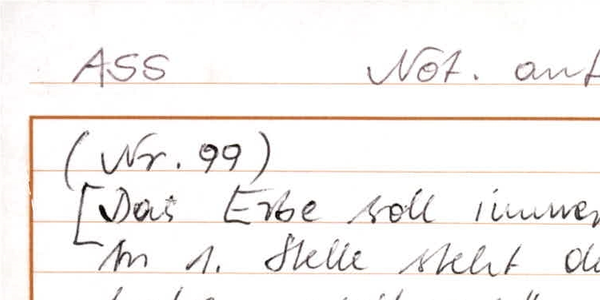 ASS Not. auf
(Nr. 99)
[Das Erbe soll immer
An 1. Stelle steht de